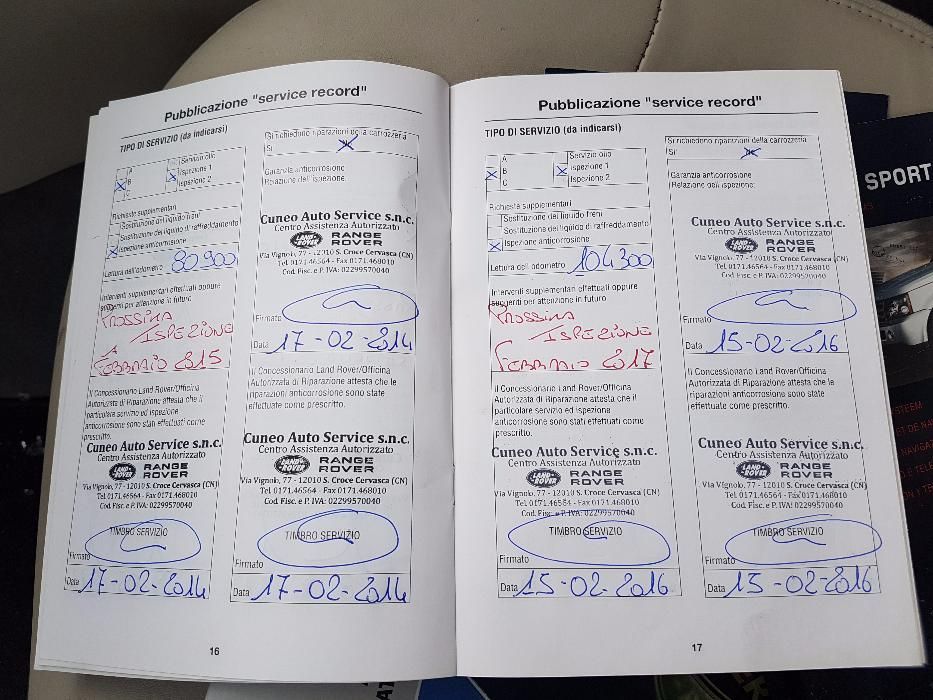 Pubblicazione "service record"
TIPO DI SERVIZIO (da indicarsi)
A
B
C
Servizio olio
Ispezione 1
Ispezione 2
Richieste supplementari
Sostituzione del liquido freni
Sostituzione del liquido di raffreddamento
Ispezione anticorrosione
Lettura dell'odometro 80.900
Interventi supplementari effettuati oppure
suggeriti per attenzione in futuro
PROSSIMA
ISPEZIONE
A
FEBBRAIO 2015
Il Concessionario Land Rover/Officina
Autorizzata di Riparazione attesta che il
particolare servizio ed ispezione
anticorrosione sono stati effettuati come
prescritto.
Cuneo Auto Service s.n.c.
Centro Assistenza Autorizzato
LAND-ROVER RANGE ROVER
Via Vignolo, 77 - 12010 S. Croce Cervasca (CN)
Tel 0171.46564 - Fax 0171.468010
Cod. Fisc. e P. IVA: 02299570040
TIMBRO SERVIZIO
Firmato
Data 17-02-2014
Si richiedono riparazioni della carrozzeria
Si
Garanzia anticorrosione
Relazione dell'ispezione:
Cuneo Auto Service s.n.c.
Centro Assistenza Autorizzato
LAND-ROVER RANGE ROVER
Via Vignolo, 77 - 12010 S. Croce Cervasca (CN)
Tel 0171.46564 - Fax 0171.468010
Cod. Fisc. e P. IVA: 02299570040
Firmato
Data 17-02-2014
Il Concessionario Land Rover/Officina
Autorizzata di Riparazione attesta che le
riparazioni anticorrosione sono state
effettuate come prescritto.
Cuneo Auto Service s.n.c.
Centro Assistenza Autorizzato
LAND-ROVER RANGE ROVER
Via Vignolo, 77 - 12010 S. Croce Cervasca (CN)
Tel 0171.46564 - Fax 0171.468010
Cod. Fisc. e P. IVA: 02299570040
TIMBRO SERVIZIO
Firmato
Data 17-02-2014
16
Pubblicazione "service record"
TIPO DI SERVIZIO (da indicarsi)
A
B
C
Servizio olio
Ispezione 1
Ispezione 2
Richieste supplementari
Sostituzione del liquido freni
Sostituzione del liquido di raffreddamento
Ispezione anticorrosione
Lettura dell'odometro 104300
Interventi supplementari effettuati oppure
suggeriti per attenzione in futuro
PROSSIMA
ISPEZIONE
FEBBRAIO 2017
Il Concessionario Land Rover/Officina
Autorizzata di Riparazione attesta che il
particolare servizio ed ispezione
anticorrosione sono stati effettuati come
prescritto.
Cuneo Auto Service s.n.c.
Centro Assistenza Autorizzato
LAND-ROVER RANGE ROVER
Via Vignolo, 77 - 12010 S. Croce Cervasca (CN)
Tel 0171.46564 - Fax 0171.468010
Cod. Fisc. e P. IVA: 02299570040
TIMBRO SERVIZIO
Firmato
Data 15-02-2016
Si richiedono riparazioni della carrozzeria
Si
Garanzia anticorrosione
Relazione dell'ispezione:
Cuneo Auto Service s.n.c.
Centro Assistenza Autorizzato
LAND-ROVER RANGE ROVER
Via Vignolo, 77 - 12010 S. Croce Cervasca (CN)
Tel 0171.46564 - Fax 0171.468010
Cod. Fisc. e P. IVA: 02299570040
Firmato
Data 15-02-2016
Il Concessionario Land Rover/Officina
Autorizzata di Riparazione attesta che le
riparazioni anticorrosione sono state
effettuate come prescritto.
Cuneo Auto Service s.n.c.
Centro Assistenza Autorizzato
LAND-ROVER RANGE ROVER
Via Vignolo, 77 - 12010 S. Croce Cervasca (CN)
Tel 0171.46564 - Fax 0171.468010
Cod. Fisc. e P. IVA: 02299570040
TIMBRO SERVIZIO
Firmato
Data 15-02-2016
17
SPORT